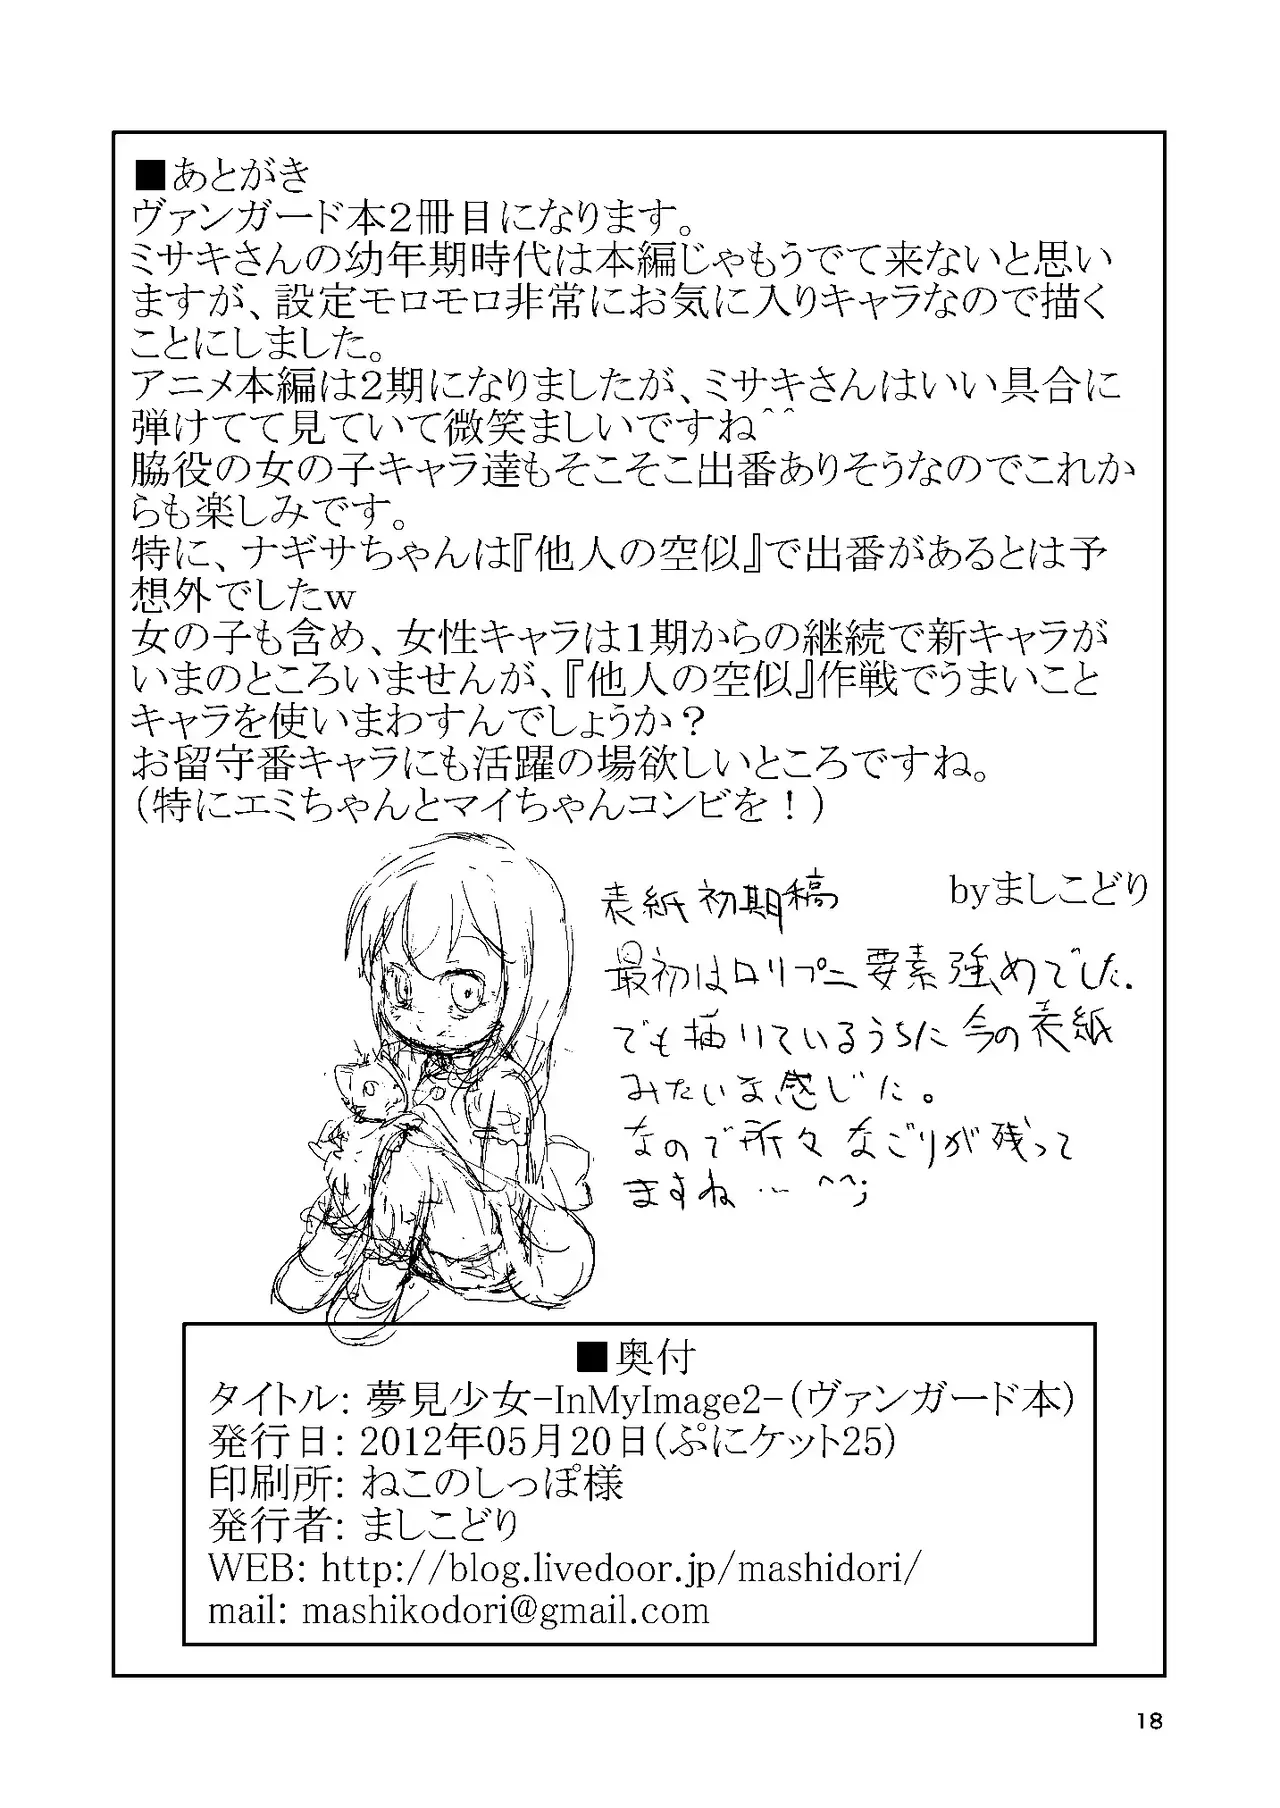 ■あとがき
ヴァンガード本２冊目になります。
ミサキさんの幼年期時代は本編じゃもうでて来ないと思い
ますが、設定モロモロ非常にお気に入りキャラなので描く
ことにしました。
アニメ本編は２期になりましたが、ミサキさんはいい具合に
弾けてて見ていて微笑ましいですね^^
脇役の女の子キャラ達もそこそこ出番ありそうなのでこれか
らも楽しみです。
特に、ナギサちゃんは『他人の空似』で出番があるとは予
想外でしたｗ
女の子も含め、女性キャラは１期からの継続で新キャラが
いまのところいませんが、『他人の空似』作戦でうまいこと
キャラを使いまわすんでしょうか？
お留守番キャラにも活躍の場欲しいところですね。
（特にエミちゃんとマイちゃんコンビを！）
byましこどり
表紙初期稿
最初はロリプニ要素強めでした.
でも描いているうちに今の表紙
みたいな感じに。
なので所々なごりが残って
ますね… ^^;
■奥付
タイトル: 夢見少女-InMyImage2-(ヴァンガード本)
発行日: 2012年05月20日(ぷにケット25)
印刷所: ねこのしっぽ様
発行者: ましこどり
WEB: http://blog.livedoor.jp/mashidori/
mail: mashikodori@gmail.com
18